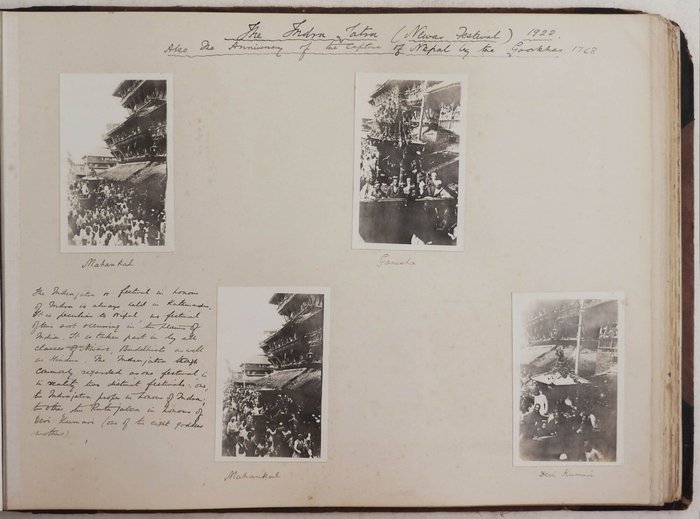 The Indra Jatra (Newar Festival) 1920.
Also The Anniversary of the Capture of Nepal by the Goorkhas 1768
Mahankal
Ganesha
The Indrajatra or festival in honour
of Indra is always held in Katmandu.
It is peculiar to Nepal, no festival
of this sort occurring in the plains of
India. It is taken part in by all
classes of Newars, Buddhists as well
as Hindu. The Indrajatra though
commonly regarded as one festival is
in reality two distinct festivals: one,
the Indrajatra proper in honour of Indra;
the other the Rath Jatra in honour of
Devi Kumari (one of the eight goddess
mothers)
Mahankal
Devi Kumari